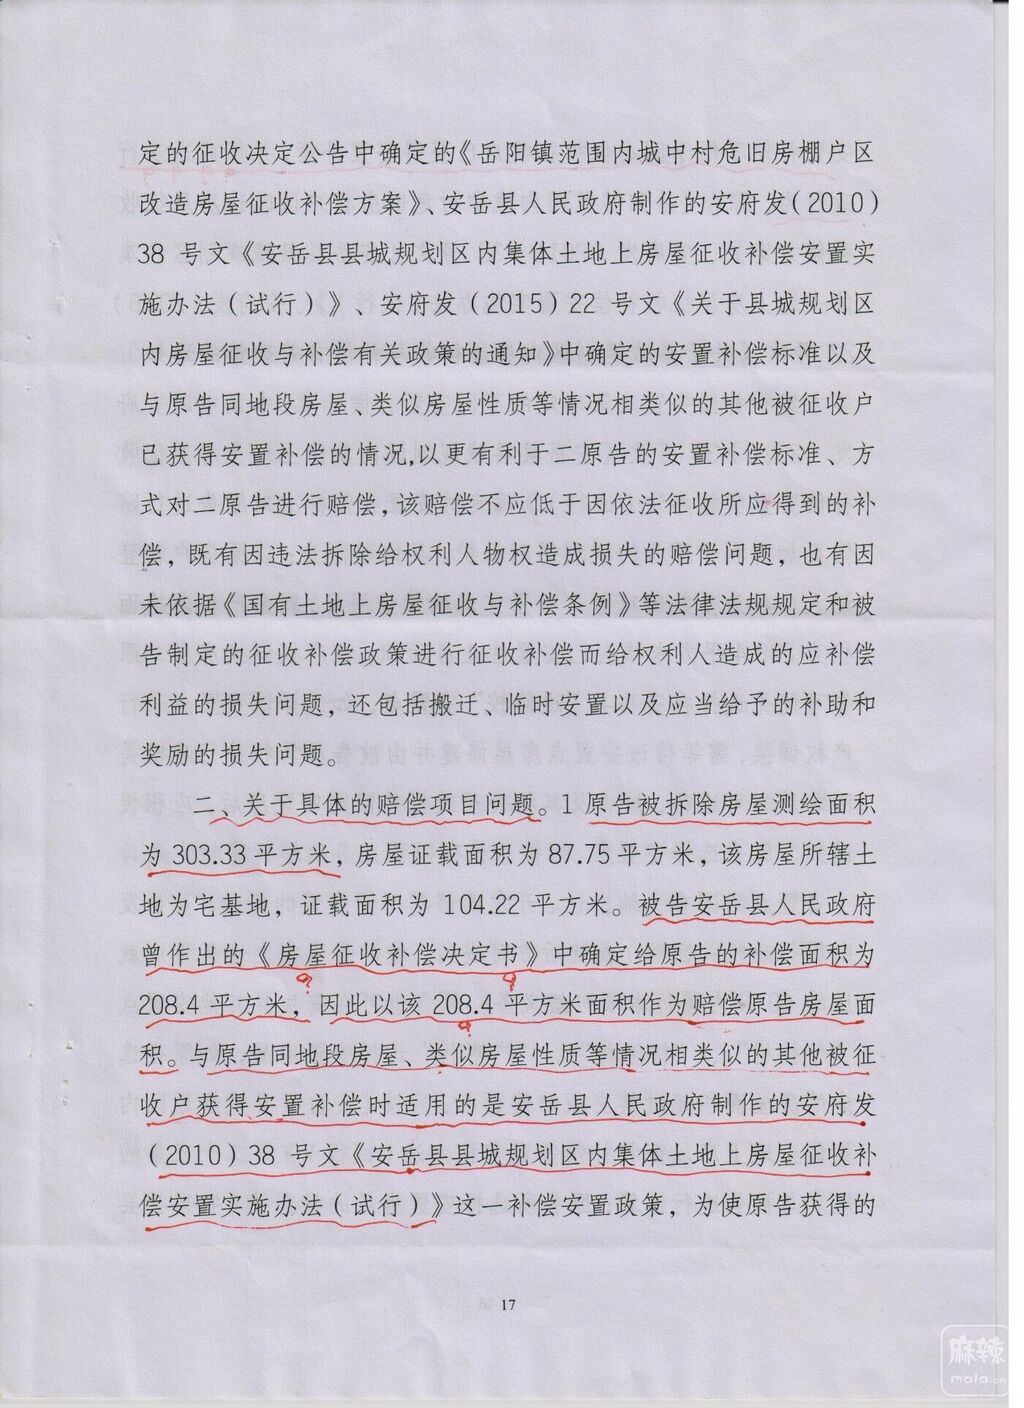 定的征收决定公告中确定的《岳阳镇范围内城中村危旧房棚户区
改造房屋征收补偿方案》、安岳县人民政府制作的安府发(2010)
38 号文《安岳县县城规划区内集体土地上房屋征收补偿安置实
施办法(试行)》、安府发(2015)22 号文《关于县城规划区
内房屋征收与补偿有关政策的通知》中确定的安置补偿标准以及
与原告同地段房屋、类似房屋性质等情况相类似的其他被征收户
已获得安置补偿的情况,以更有利于二原告的安置补偿标准、方
式对二原告进行赔偿,该赔偿不应低于因依法征收所应得到的补
偿,既有因违法拆除给权利人物权造成损失的赔偿问题,也有因
未依据《国有土地上房屋征收与补偿条例》等法律法规规定和被
告制定的征收补偿政策进行征收补偿而给权利人造成的应补偿
利益的损失问题,还包括搬迁、临时安置以及应当给予的补助和
奖励的损失问题。
二、关于具体的赔偿项目问题。1 原告被拆除房屋测绘面积
为 303.33 平方米,房屋证载面积为 87.75 平方米,该房屋所辖土
地为宅基地,证载面积为 104.22 平方米。被告安岳县人民政府
曾作出的《房屋征收补偿决定书》中确定给原告的补偿面积为
208.4 平方米,因此以该 208.4 平方米面积作为赔偿原告房屋面
积。与原告同地段房屋、类似房屋性质等情况相类似的其他被征
收户获得安置补偿时适用的是安岳县人民政府制作的安府发
(2010)38 号文《安岳县县城规划区内集体土地上房屋征收补
偿安置实施办法(试行)》这一补偿安置政策,为使原告获得的
17
麻辣
mala.cn